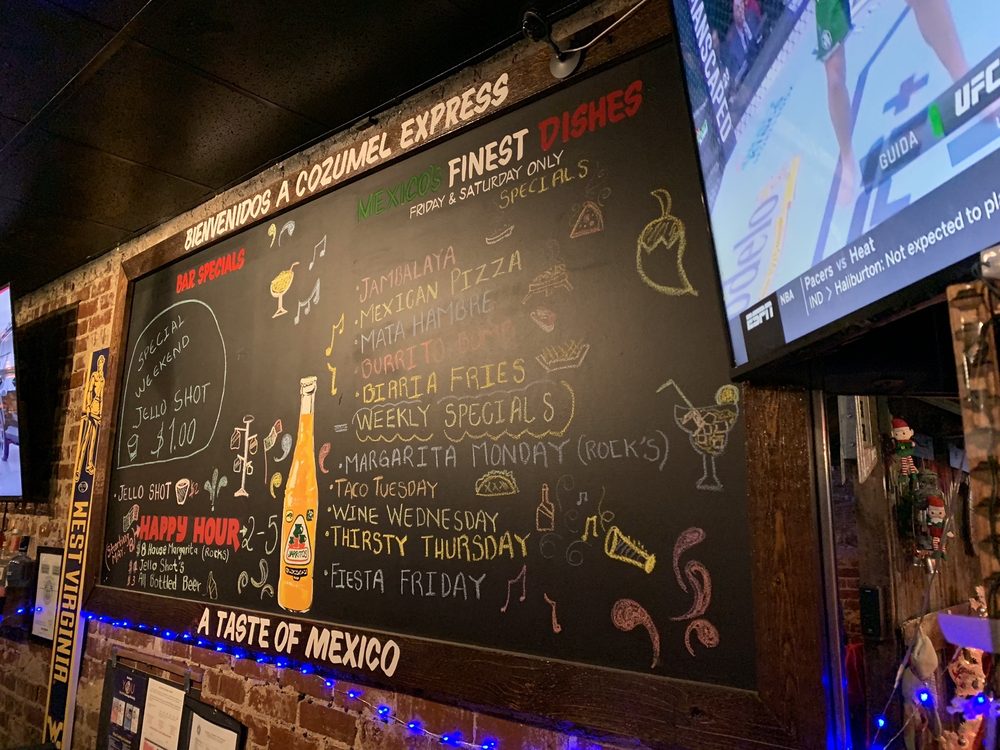 BIENVENIDOS A COZUMEL EXPRESS
BAR SPECIALS
SPECIAL
WEEKEND
JELLO SHOT
$1.00
JELLO SHOT
HAPPY HOUR 2-5
$8 House Margarita (Rocks)
Jello Shot's
$3 All Bottled Beer
JARRITOS
MEXICO'S FINEST DISHES
FRIDAY & SATURDAY ONLY
SPECIALS
• JAMBALAYA
• MEXICAN PIZZA
• MATA HAMBRE
• BURRITO
• BIRRIA FRIES
WEEKLY SPECIALS
• MARGARITA MONDAY (ROCK'S)
• TACO TUESDAY
• WINE WEDNESDAY
• THIRSTY THURSDAY
• FIESTA FRIDAY
A TASTE OF MEXICO
WEST VIRGINIA
MANSCAPED
GUIDA
UFC
ESPN
NBA
Pacers vs Heat
IND > Haliburton: Not expected to pl